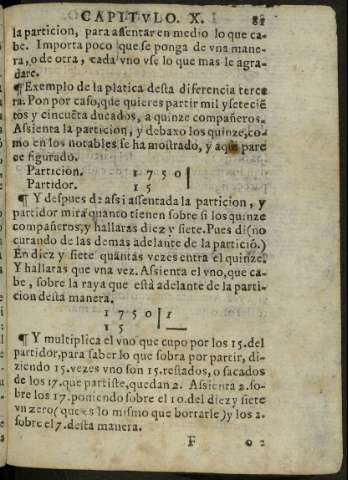 CAPITVLO. X. 81
la particion, para assentar en medio lo que ca-
be. Importa poco que se ponga de vna mane-
ra, o de otra, cada vno vse lo que mas le agra-
dare.
¶Exemplo de la platica desta diferencia terce
ra. Pon por caso, que quieres partir mil y setecië
tos y cincuëta ducados, a quinze compañeros.
Assienta la particion, y debaxo los quinze, co-
mo en los notables se ha mostrado, y aqui pare
ce figurado.
Particion. 1 7 5 0 |
Partidor. 1 5 |
¶ Y despues de assi assentada la particion, y
partidor mira quanto tienen sobre si los quinze
compañeros, y hallaras diez y siete. Pues di (no
curando de las demas adelante de la particiõ.)
En diez y siete quantas vezes entra el quinze.
Y hallaras que vna vez. Assienta el vno, que ca-
be, sobre la raya que està adelante de la parti-
cion desta manera.
1 7 5 0 | 1
1 5 | —
¶ Y multiplica el vno que cupo por los 15. del
partidor, para saber lo que sobra por partir, di-
ziendo 15. vezes vno son 15. restados, o sacados
de los 17. que partiste, quedan 2. Assienta 2. so-
bre los 17. poniendo sobre el 10. del diez y siete
vn zero (que es lo mismo que borrarle) y los 2.
sobre el 7. desta manera.
F 0 2